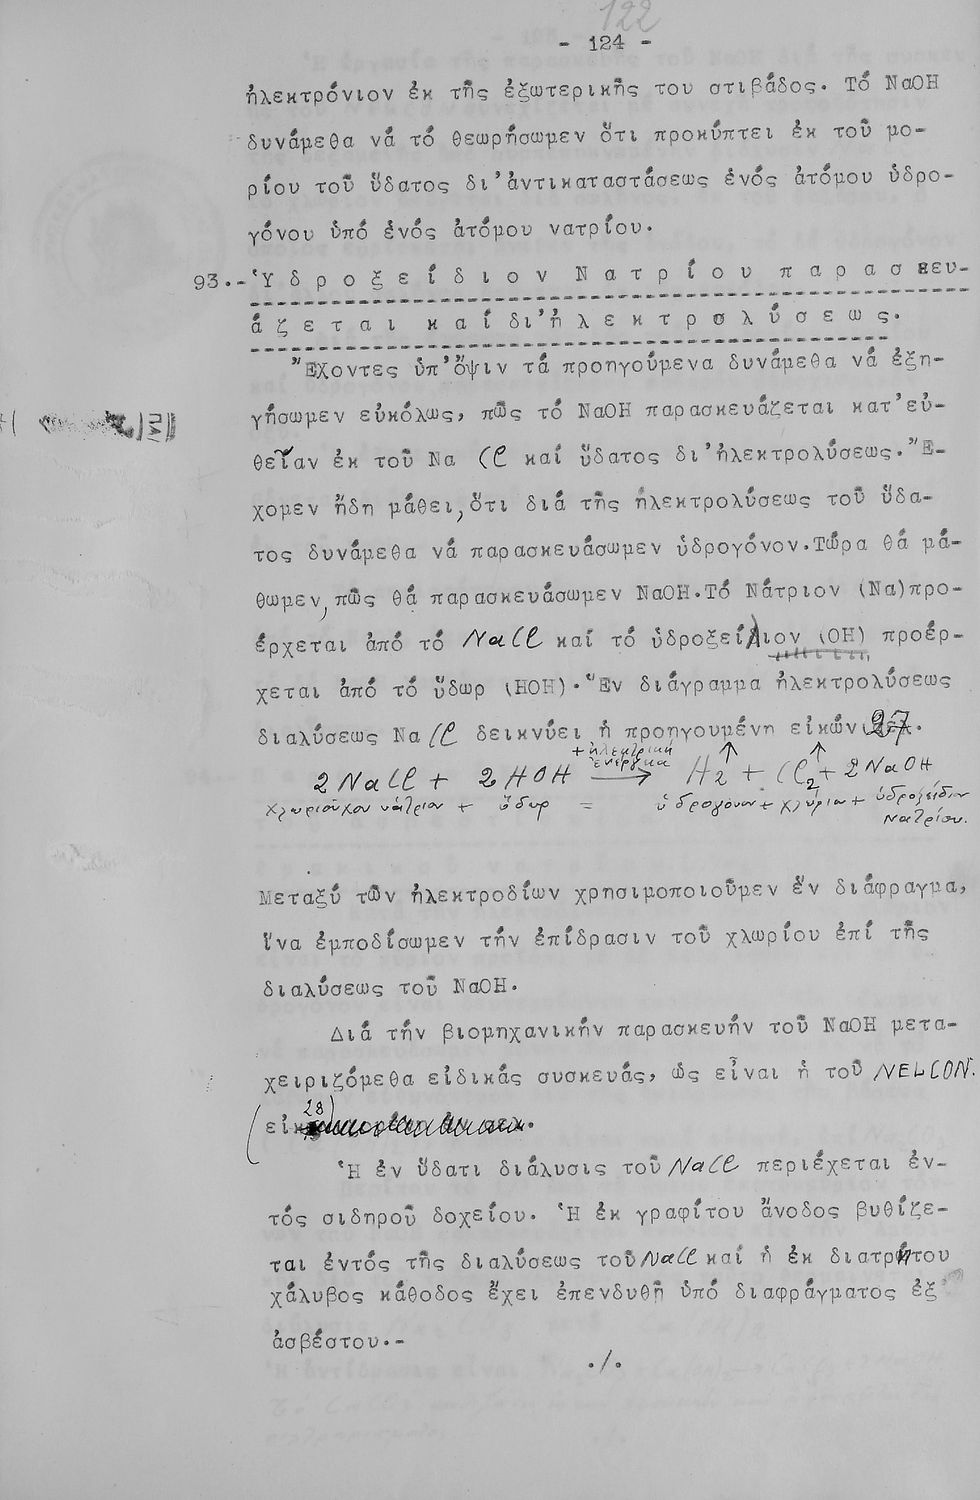 122
- 124 -
ἠλεκτρόνιον ἐκ τῆς ἐξωτερικῆς του στιβάδος. Τό NaOH
δυνάμεθα νά τό θεωρήσωμεν ὅτι προκύπτει ἐκ τοῦ μο-
ρίου τοῦ ὕδατος δι'ἀντικαταστάσεως ἑνός ἀτόμου ὑδρο-
γόνου ὑπό ἑνός ἀτόμου νατρίου.
93.-Ὑδροξείδιον Νατρίου παρασκευ-
άζεται καί δι'ἠλεκτρολύσεως.
Ἔχοντες ὑπ'ὄψιν τά προηγούμενα δυνάμεθα νά ἐξη-
γήσωμεν εὐκόλως, πῶς τό NaOH παρασκευάζεται κατ'εὐ-
θεῖαν ἐκ τοῦ Na Cl καί ὕδατος δι'ἠλεκτρολύσεως. Ἔ-
χομεν ἤδη μάθει, ὅτι διά τῆς ἠλεκτρολύσεως τοῦ ὕδα-
τος δυνάμεθα νά παρασκευάσωμεν ὑδρογόνον.Τώρα θά μά-
θωμεν, πῶς θά παρασκευάσωμεν NaOH.Τό Νάτριον (Na)προ-
έρχεται ἀπό τό NaCl καί τό ὑδροξείλιον (OH) προέρ-
χεται ἀπό τό ὕδωρ (HOH). Ἕν διάγραμμα ἠλεκτρολύσεως
διαλύσεως Na Cl δεικνύει ἡ προηγουμένη εἰκών 27.
2 NaCl + 2 HOH + ἠλεκτρική ἐνέργεια → H2 ↑ + Cl2 ↑ + 2 NaOH
Χλωριοῦχον νάτριον + ὕδωρ = ὑδρογόνον + χλώριον + ὑδροξείδιον
Νατρίου.
Μεταξύ τῶν ἠλεκτροδίων χρησιμοποιοῦμεν ἕν διάφραγμα,
ἵνα ἐμποδίσωμεν τήν ἐπίδρασιν τοῦ χλωρίου ἐπί τῆς
διαλύσεως τοῦ NaOH.
Διά τήν βιομηχανικήν παρασκευήν τοῦ NaOH μετα-
χειριζόμεθα εἰδικάς συσκευάς, ὡς εἶναι ἡ τοῦ NELCON.
(εἰκ 28).
Ἡ ἐν ὕδατι διάλυσις τοῦ NaCl περιέχεται ἐν-
τός σιδηροῦ δοχείου. Ἡ ἐκ γραφίτου ἄνοδος βυθίζε-
ται ἐντός τῆς διαλύσεως τοῦ NaCl καί ἡ ἐκ διατρήτου
χάλυβος κάθοδος ἔχει ἐπενδυθῆ ὑπό διαφράγματος ἐξ
ἀσβέστου.-
./.